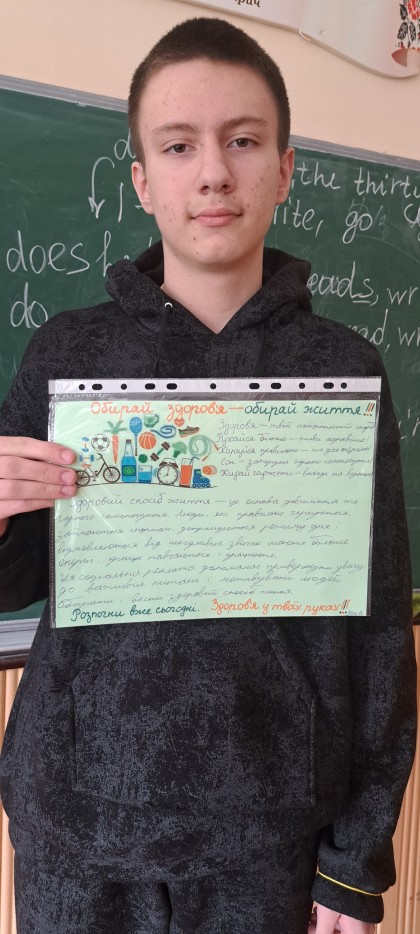 the thirty
ite, go
does
do
Обирай здоров'я — обирай життя!!!
Здоров'я — твій найцінніший скарб
Рухайся більше — живи яскравіше!
Харчуйся правильно —
Сон — запорука гарного самопочуття!
Кидай гаджети — виходь на вулицю!
Здоровий спосіб життя — це основа довголіття та
гарного самопочуття. Люди, які правильно харчуються,
займаються спортом, дотримуються режиму дня і
відмовляються від шкідливих звичок мають більше
енергії, краще навчаються і працюють.
Ця соціальна реклама допомагає привернути увагу
до важливих питань і мотивувати людей
обирати і вести здоровий спосіб життя.
Розпочни вже сьогодні. Здоров'я у твоїх руках!!!